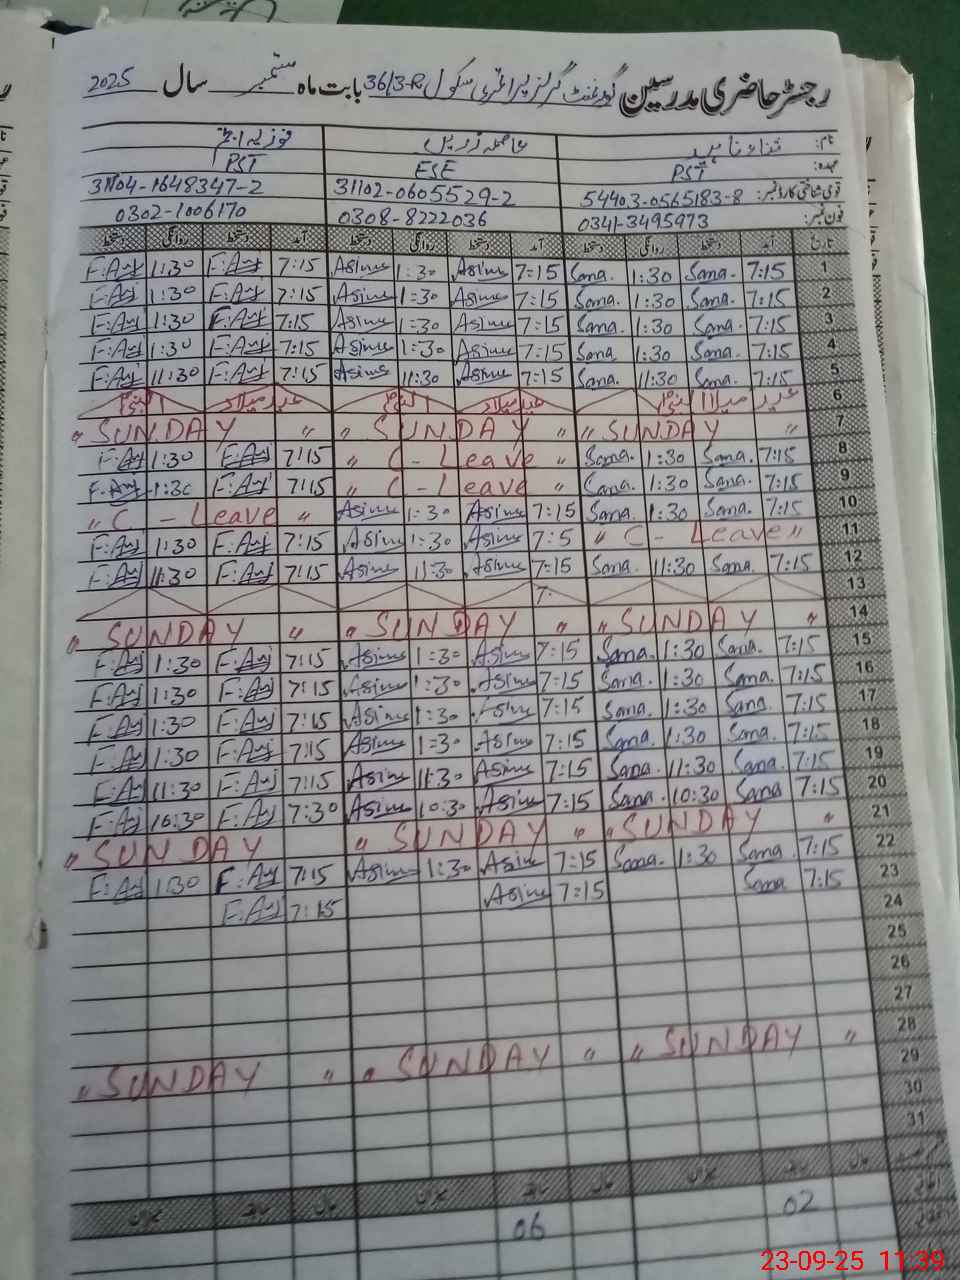 رجسٹر حاضری مدرسین گورنمنٹ گرلز پرائمری سکول 36/3-R بابت ماہ ستمبر سال 2025
نام: فوزیہ
عہدہ: PST ESE PST
قومی شناختی کارڈ نمبر: 54403-0565183-8 31102-0605529-2 31104-1648347-2
فون نمبر: 0341-3495973 0308-8222036 0302-1006170
تاریخ آمد دستخط روانگی دستخط آمد دستخط روانگی دستخط آمد دستخط روانگی دستخط
1 7:15 Sana. 1:30 Sana. 7:15 Asima 1:30 Asima 7:15 F.Anj 1:30 F.Anj
2 7:15 Sana. 1:30 Sana. 7:15 Asima 1:30 Asima 7:15 F.Anj 1:30 F.Anj
3 7:15 Sana. 1:30 Sana. 7:15 Asima 1:30 Asima 7:15 F.Anj 1:30 F.Anj
4 7:15 Sana. 1:30 Sana. 7:15 Asima 1:30 Asima 7:15 F.Anj 1:30 F.Anj
5 7:15 Sana. 11:30 Sana. 7:15 Asima 11:30 Asima 7:15 F.Anj 11:30 F.Anj
6 عید میلاد النبیؐ عید میلاد النبیؐ عید میلاد النبیؐ
7 " SUNDAY " " SUNDAY " " SUNDAY "
8 7:15 Sana. 1:30 Sana. " C - Leave " 7:15 F.Anj 1:30 F.Anj
9 7:15 Sana. 1:30 Sana. " C - Leave " 7:15 F.Anj 1:30 F.Anj
10 7:15 Sana. 1:30 Sana. 7:15 Asima 1:30 Asima " C - Leave "
11 " C - Leave " 7:5 Asima 1:30 Asima 7:15 F.Anj 1:30 F.Anj
12 7:15 Sana. 11:30 Sana. 7:15 Asima 11:30 Asima 7:15 F.Anj 11:30 F.Anj
13 7.
14 " SUNDAY " " SUNDAY " " SUNDAY "
15 7:15 Sana. 1:30 Sana. 7:15 Asima 1:30 Asima 7:15 F.Anj 1:30 F.Anj
16 7:15 Sana. 1:30 Sana. 7:15 Asima 1:30 Asima 7:15 F.Anj 1:30 F.Anj
17 7:15 Sana. 1:30 Sana. 7:15 Asima 1:30 Asima 7:15 F.Anj 1:30 F.Anj
18 7:15 Sana. 1:30 Sana. 7:15 Asima 1:30 Asima 7:15 F.Anj 1:30 F.Anj
19 7:15 Sana. 11:30 Sana. 7:15 Asima 11:30 Asima 7:15 F.Anj 11:30 F.Anj
20 7:15 Sana 10:30 Sana. 7:15 Asima 10:30 Asima 7:30 F.Anj 10:30 F.Anj
21 " SUNDAY " " SUNDAY " " SUNDAY
22 7:15 Sana 1:30 Sana. 7:15 Asima 1:30 Asima 7:15 F.Anj 1:30 F.Anj
23 7:15 Sana 7:15 Asima 7:15 F.Anj
24
25
26
27
28 " SUNDAY " " SUNDAY " " SUNDAY "
29
30
31
حال سابقہ میزان حال سابقہ میزان حال سابقہ میزان
02 06
23-09-25 11:39